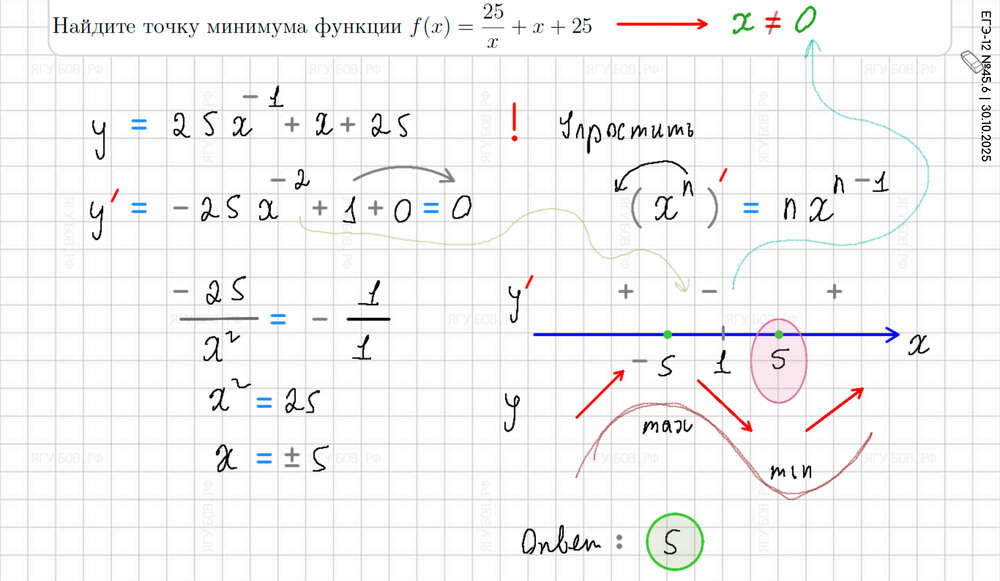 Найдите точку минимума функции f(x) = 25/x + x + 25 x ≠ 0
ЕГЭ-12 №45.6 | 30.10.2025
y = 25x^-1 + x + 25 ! Упростить
y' = -25x^-2 + 1 + 0 = 0 (x^n)' = nx^n-1
-25/x^2 = -1/1
x^2 = 25
x = ±5
y' + - +
-5 1 5 x
y max min
Ответ: 5
ЯГУБОВ.РФ